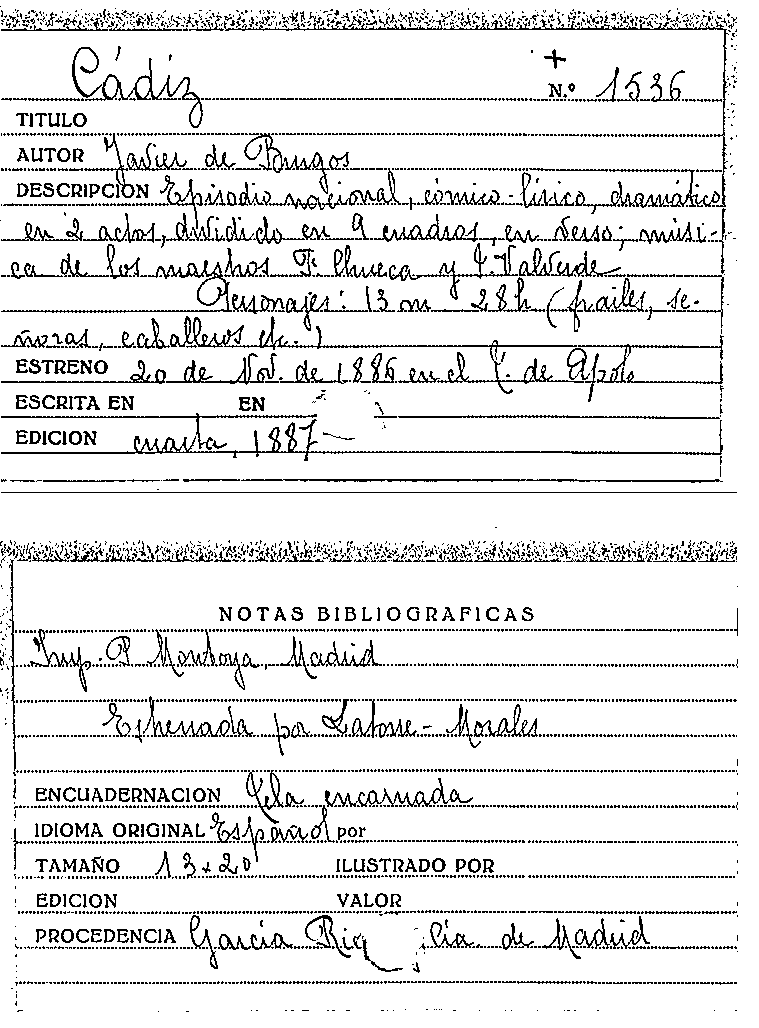 Cádiz
+
N.º 1536
TITULO
AUTOR Javier de Burgos
DESCRIPCION Episodio nacional, cómico-lírico, dramático
en 2 actos, dividido en 9 cuadros, en verso; músi-
ca de los maestros F. Chueca y J. Valverde
Personajes: 13 m 28 h (frailes, se-
ñoras, caballeros etc.)
ESTRENO 20 de Nov. de 1886 en el T. de Apolo
ESCRITA EN EN
EDICION cuarta, 1887
NOTAS BIBLIOGRAFICAS
Imp. P Montoya, Madrid
Estrenada por Latorre - Morales
ENCUADERNACION Tela encarnada
IDIOMA ORIGINAL Español por
TAMAÑO 13 x 20 ILUSTRADO POR
EDICION VALOR
PROCEDENCIA García Rig lía de Madrid